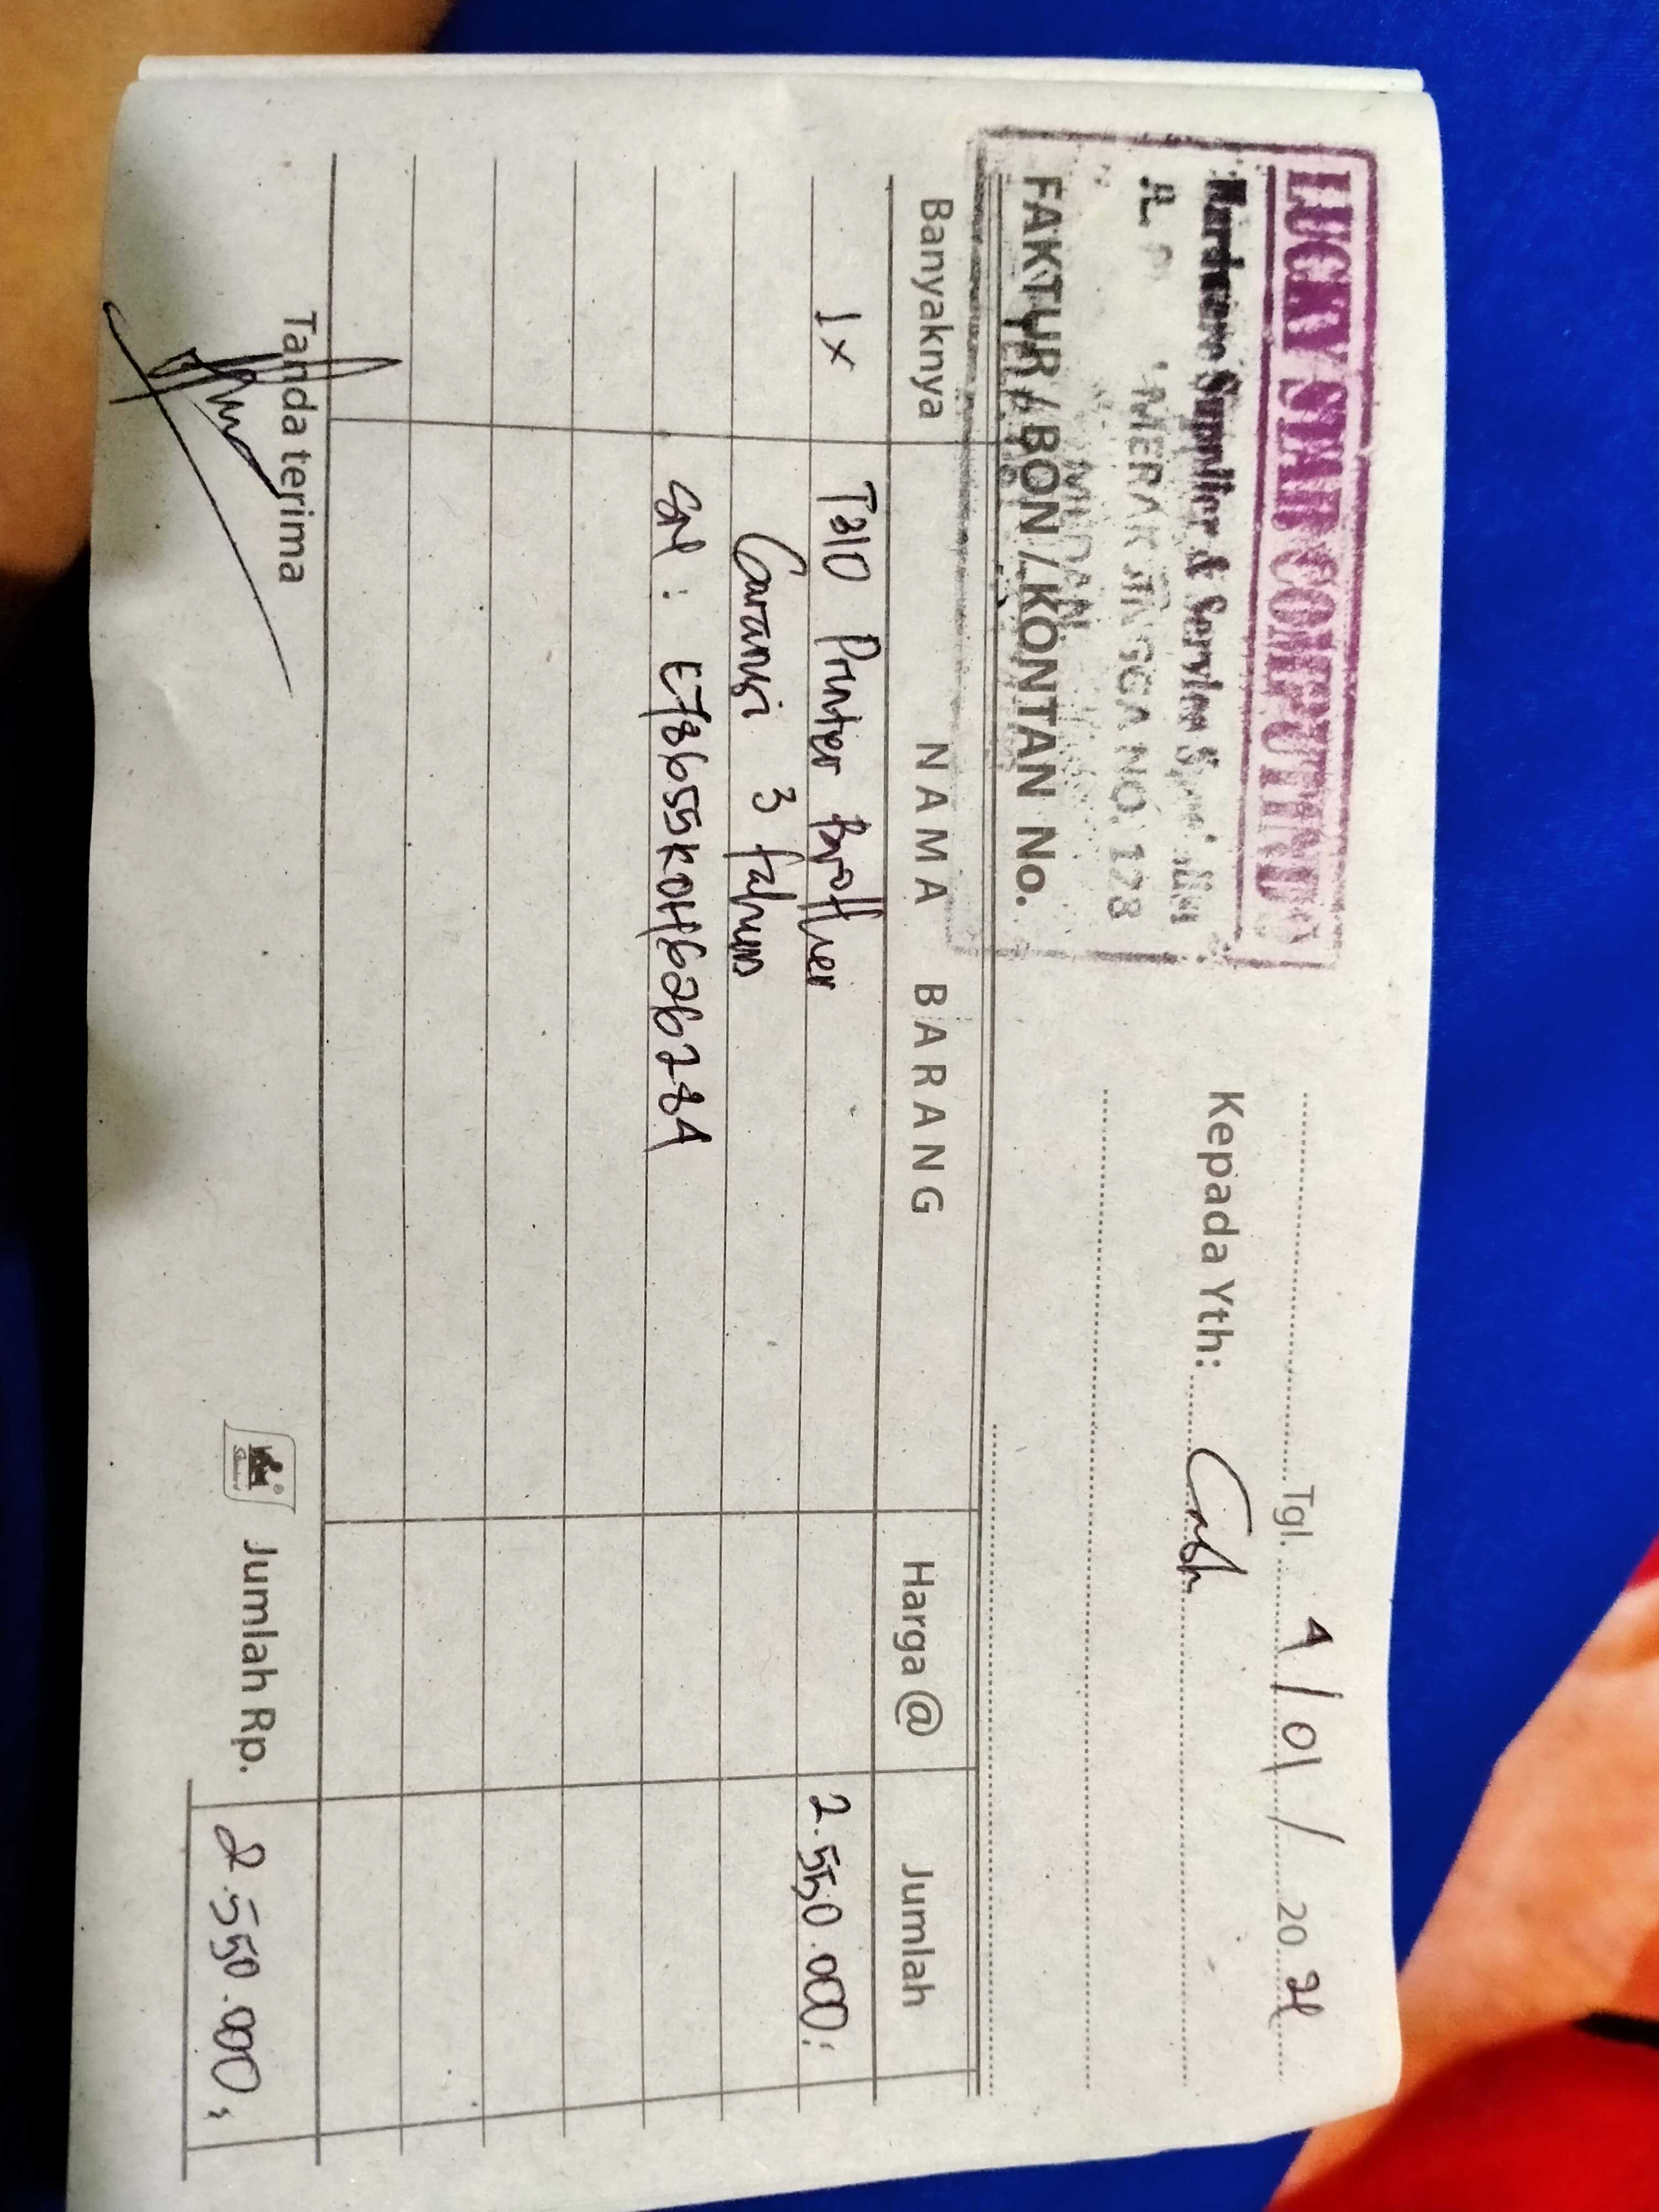 LUCKY STAR COMPUTINDO
Hardware Supplier & Service
JL. MERAK JINGGA NO. 123
MEDAN
FAKTUR / BON / KONTAN No.
Tgl. 4 / 01 / 20 21
Kepada Yth: Cash
Banyaknya NAMA BARANG Harga @ Jumlah
1 x T310 Printer Brother 2.550.000,-
Garansi 3 tahun
SN : E78655K0H626284
Tanda terima
Jumlah Rp. 2.550.000,